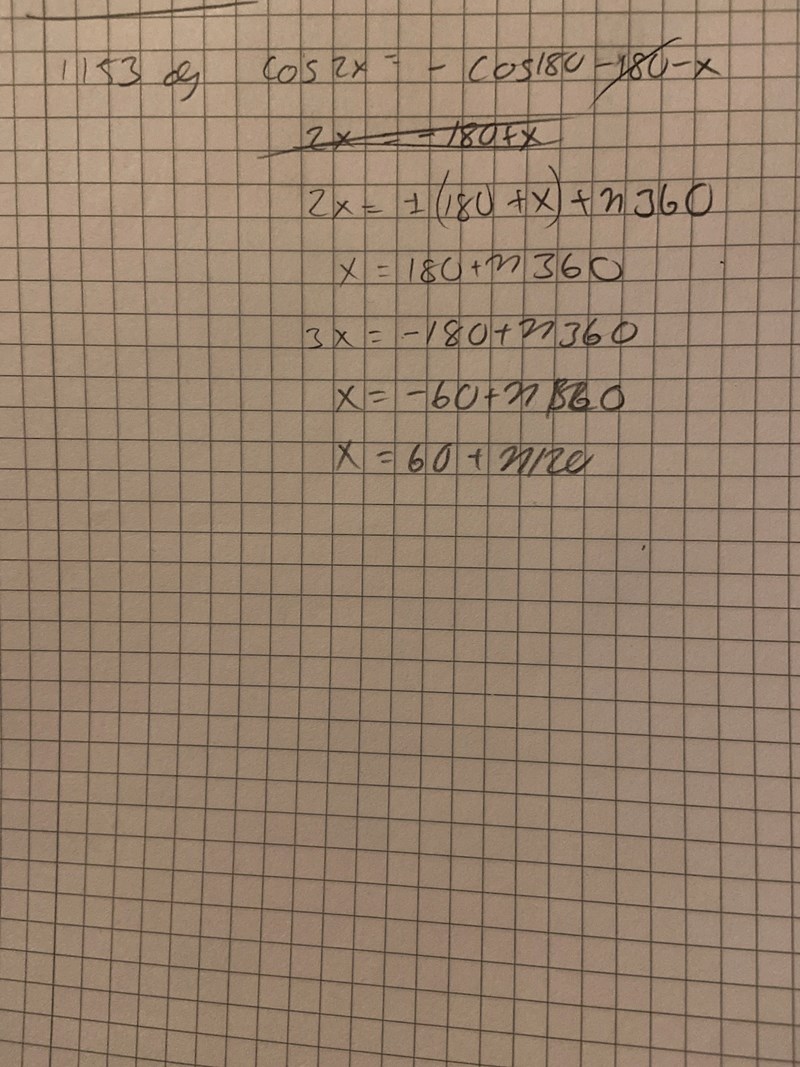 1153 dg cos 2x = - cos180 -180 - x
2x = -180+x
2x = ±(180 +x) + n360
x = 180+n360
3x = -180+n360
x = -60+n 0
x = 60 + n120